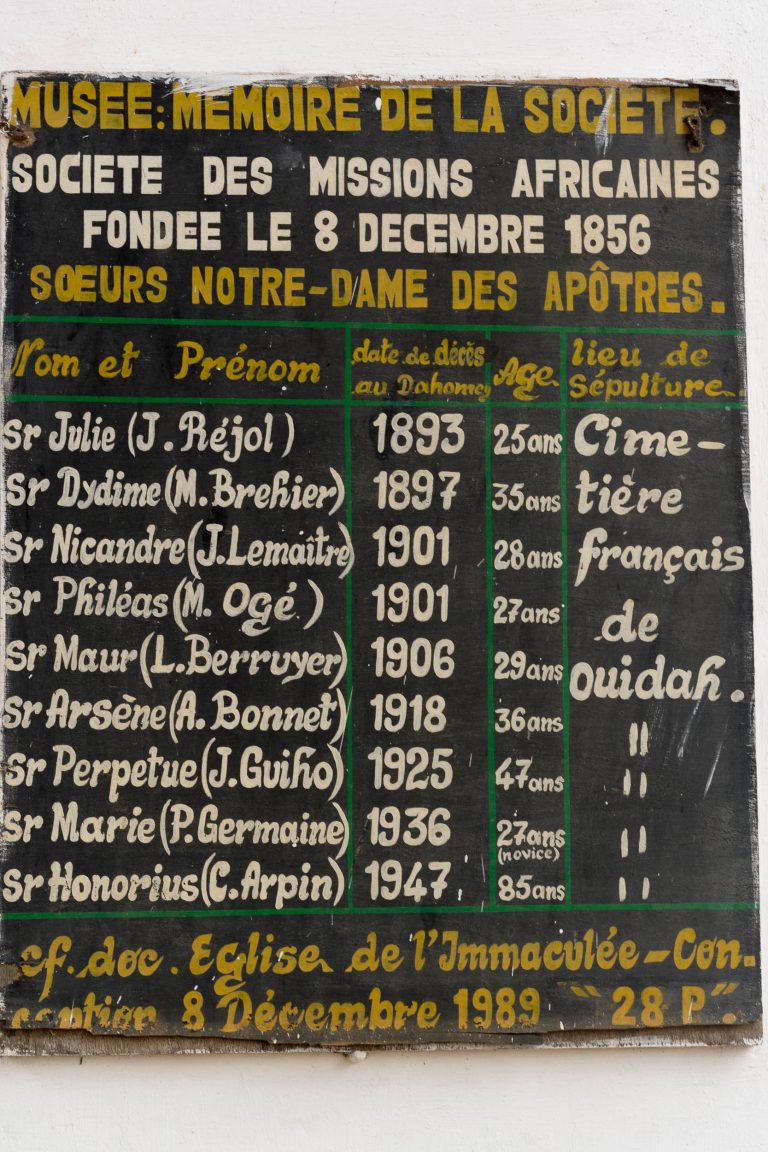 MUSEE: MEMOIRE DE LA SOCIETE.
SOCIETE DES MISSIONS AFRICAINES
FONDEE LE 8 DECEMBRE 1856
SŒURS NOTRE-DAME DES APÔTRES.
Nom et Prénom date de décès au Dahomey Age lieu de Sépulture
Sr Julie (J. Réjol) 1893 25ans Cime-
Sr Dydime (M. Brehier) 1897 35ans tière
Sr Nicandre (J. Lemaître) 1901 28ans français
Sr Philéas (M. Ogé) 1901 27ans de
Sr Maur (L. Berruyer) 1906 29ans ouidah.
Sr Arsène (A. Bonnet) 1918 36ans "
Sr Perpetue (J. Guiho) 1925 47ans "
Sr Marie (P. Germaine) 1936 27ans (novice) "
Sr Honorius (C. Arpin) 1947 85ans "
cf. doc. Eglise de l'Immaculée-Con.
ception 8 Décembre 1989 "28 P".